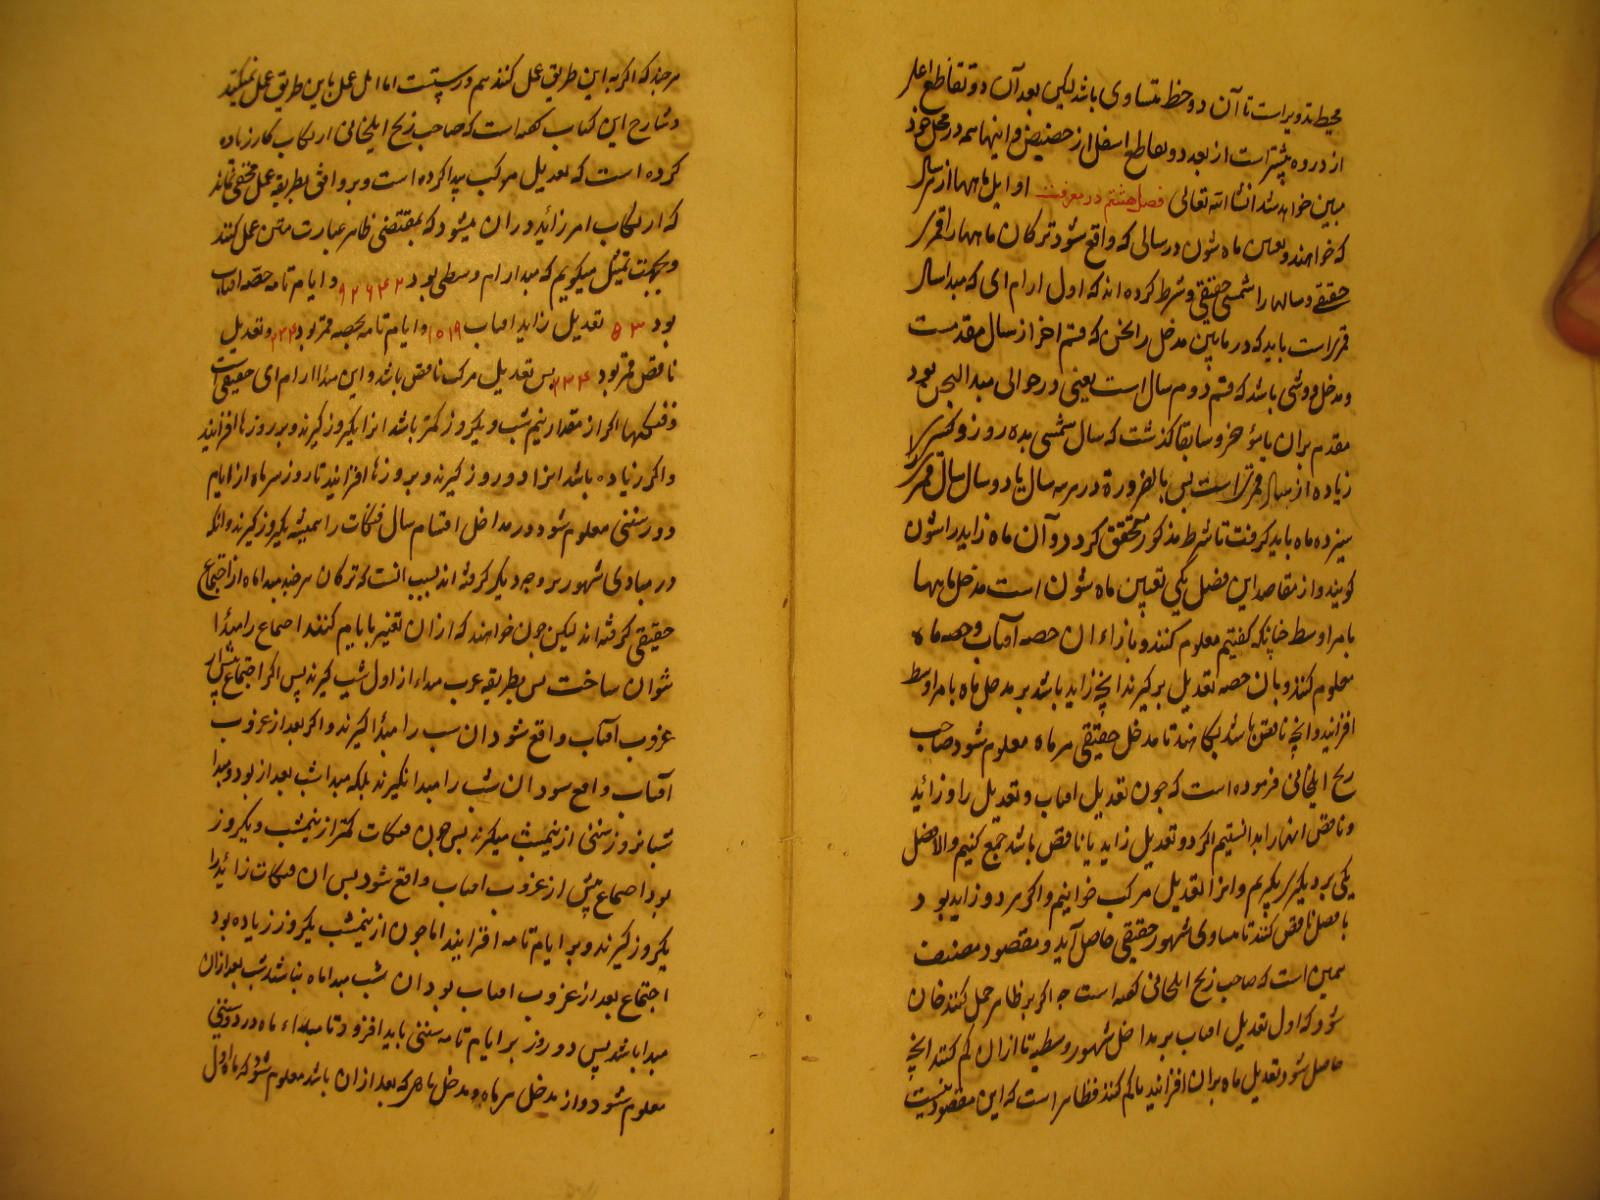 محیط تدویر است تا آن دو خط متساوی باشد لیکن بعد آن دو تقاطع اعلی
از دروه بیشتر است از بعد دو تقاطع اسفل از حضیض و اینها همه در محل خود
مبین خواهد شد انشا الله تعالی فصل هشتم در معرفت اوایل ماهها از هر سال
که خواهند و تعیین ماه شون در سالی که واقع شود ترکان ماهها را قمری
حقیقی و سالها را شمسی حقیقی و شرط کرده اند که اول ارام ای که مبدا سال
قمری است باید که در مابین مدخل رابخن که قسم اخر از سال مقدمست
و مدخل ووشی باشد که قسم دوم سال است یعنی در حوالی مبدا لیجن بود
مقدم بران یا مؤخر و سابقا گذشت که سال شمسی بده روز و کسری
زیاده از سال قمری است بس بالضرورة در هر سه سال یا دو سال سال قمری را
سیزده ماه باید گرفت تا شرط مذکور متحقق کردد و آن ماه زاید را شون
گویند و از مقاصد این فصل یکی تعیین ماه شون است مدخل ماهها
بامر اوسط چنانکه گفتیم معلوم کنند و بازاء ان حصه آفتاب و حصه ماه
معلوم کنند و بان حصه تعدیل برگیرند انچه زاید باشد بر مدخل ماه بامر اوسط
افزایند وانچه ناقص باشد بکاهند تا مدخل حقیقی هر ماه معلوم شود صاحب
زیج ایلخانی فرموده است که چون تعدیل افتاب و تعدیل را و زائد
و ناقص انها را بدانستیم اگر دو تعدیل زاید یا ناقص باشد جمع کنیم والا فضل
یکی بر دیگری بگیریم و انرا تعدیل مرکب خوانیم و اگر هر دو زاید بود
با فصل ناقص کنند تا مبادی شهور حقیقی حاصل آید و مقصود مصنف
همین است که صاحب زیج ایلخانی گفته است چه اگر بر ظاهر حمل کنند چنان
شود که اول تعدیل افتاب بر مداخل شهور وسطیه تا ازان کم کنند انچه
حاصل شود تعدیل ماه بران افزایند یا کم کنند و ظاهر است که این مقصود نیست
هر چند که اگر به این طریق عمل کنند هم درستست اما اهل عمل باین طریق عمل نمیکنند
و شارح این کتاب گفته است که صاحب زیج ایلخانی ارتکاب کار زیاده
کرده است که تعدیل مرکب پیدا کرده است و بر واقف بطریقه عمل مخفی نماند
که ارتکاب امر زائد دران میشود که بمقتضی ظاهر عبارت متن عمل کنند
و بجهت تمثیل میگویم که مبدا ارام وسطی بود ۹۲۶۴۲ و ایام تامه حصه افتاب
بود ۵۳ تعدیل زاید افتاب ۱۵۱۹ و ایام تامه بحصه قمر بود ۲۲۴ و تعدیل
ناقص قمر بود ۲۳۴ بس تعدیل مرکب ناقص باشد و این مبدا ارام ای حقیقی است
و فنکها اگر از مقدار نیم شب و یکروز کمتر باشد انرا یکروز گیرند و بر روزها افزایند
و اگر زیاده باشد انرا دو روز گیرند و بر روزها افزایند تا روز سر ماه از ایام
دور ستینی معلوم شود در مداخل اقسام سال فنکات را همیشه یکروز گیرند وانکه
در مبادی شهور بر وجه دیگر گرفته اند بسبب انست که ترکان هر چند مبدا ماه از اجتماع
حقیقی گرفته اند لیکن چون خواهند که ازان تعبیر بایام کنند اجتماع را مبدا
نتوان ساخت بس بطریقه عرب مبداء از اول شب گیرند پس اگر اجتماع پیش از
غروب آفتاب واقع شود ان شب را مبدا گیرند و اگر بعد از غروب
آفتاب واقع شود ان شب را مبدا نگیرند بلکه مبدا شب بعد از بود و مبدا
شبانروز ستینی از نیمشب میگیرند بس چون فنکات کمتر از نیمشب و یکروز
بود اجتماع پیش از غروب افتاب واقع شود بس ان فنکات زائد را
یکروز گیرند و بر ایام تامه افزایند اما چون از نیمشب یکروز زیاده بود
اجتماع بعد از غروب افتاب بود ان شب مبدا ماه نباشد شب بعد ازان
مبدا باشد پس دو روز بر ایام تامه ستینی باید افزود تا مبداء ماه در دور ستینی
معلوم شود و از مدخل هر ماه و مدخل ماهی که بعد ازان باشد معلوم شود که ماه اول